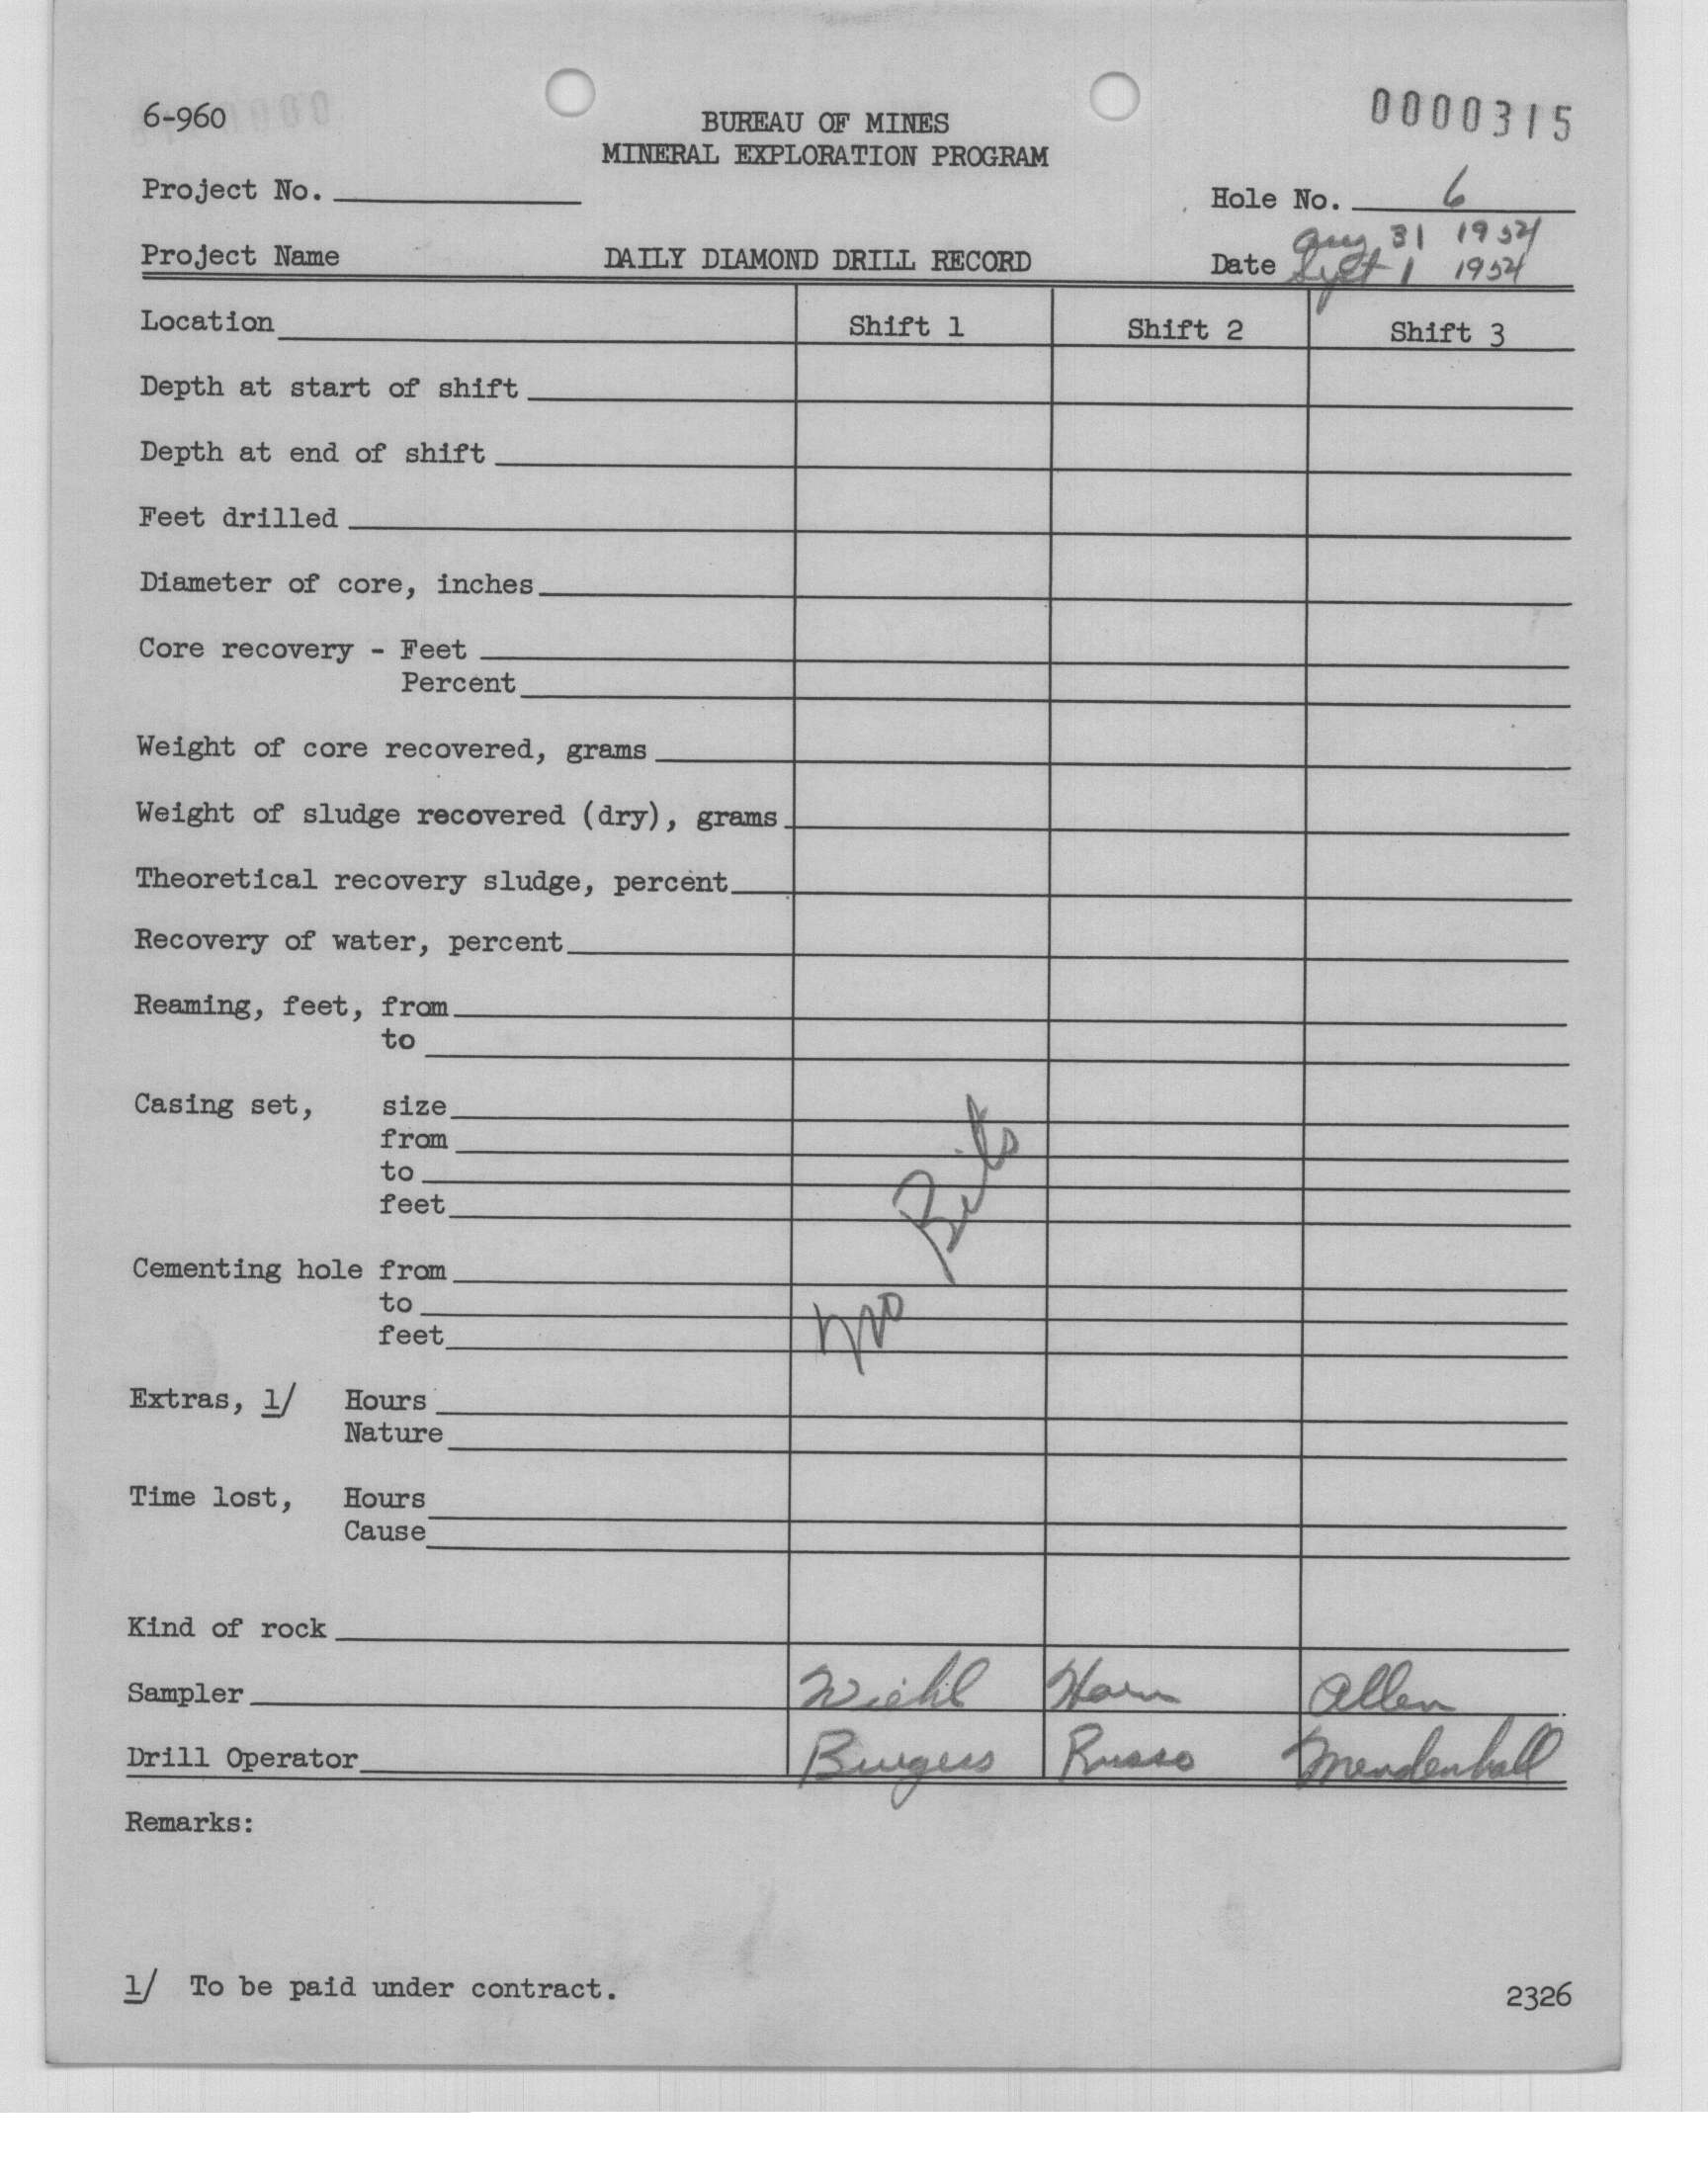 6-960
0000315
BUREAU OF MINES
MINERAL EXPLORATION PROGRAM
Project No.
Hole No. 6
Aug 31 1954
Project Name DAILY DIAMOND DRILL RECORD Date Sept 1 1954
Location Shift 1 Shift 2 Shift 3
Depth at start of shift
Depth at end of shift
Feet drilled
Diameter of core, inches
Core recovery - Feet
Percent
Weight of core recovered, grams
Weight of sludge recovered (dry), grams
Theoretical recovery sludge, percent
Recovery of water, percent
Reaming, feet, from
to
Casing set, size
from
to
feet
No Bits
Cementing hole from
to
feet
Extras, 1/ Hours
Nature
Time lost, Hours
Cause
Kind of rock
Sampler Wiehl Horn Allen
Drill Operator Burgess Russo Mendenhall
Remarks:
1/ To be paid under contract.
2326